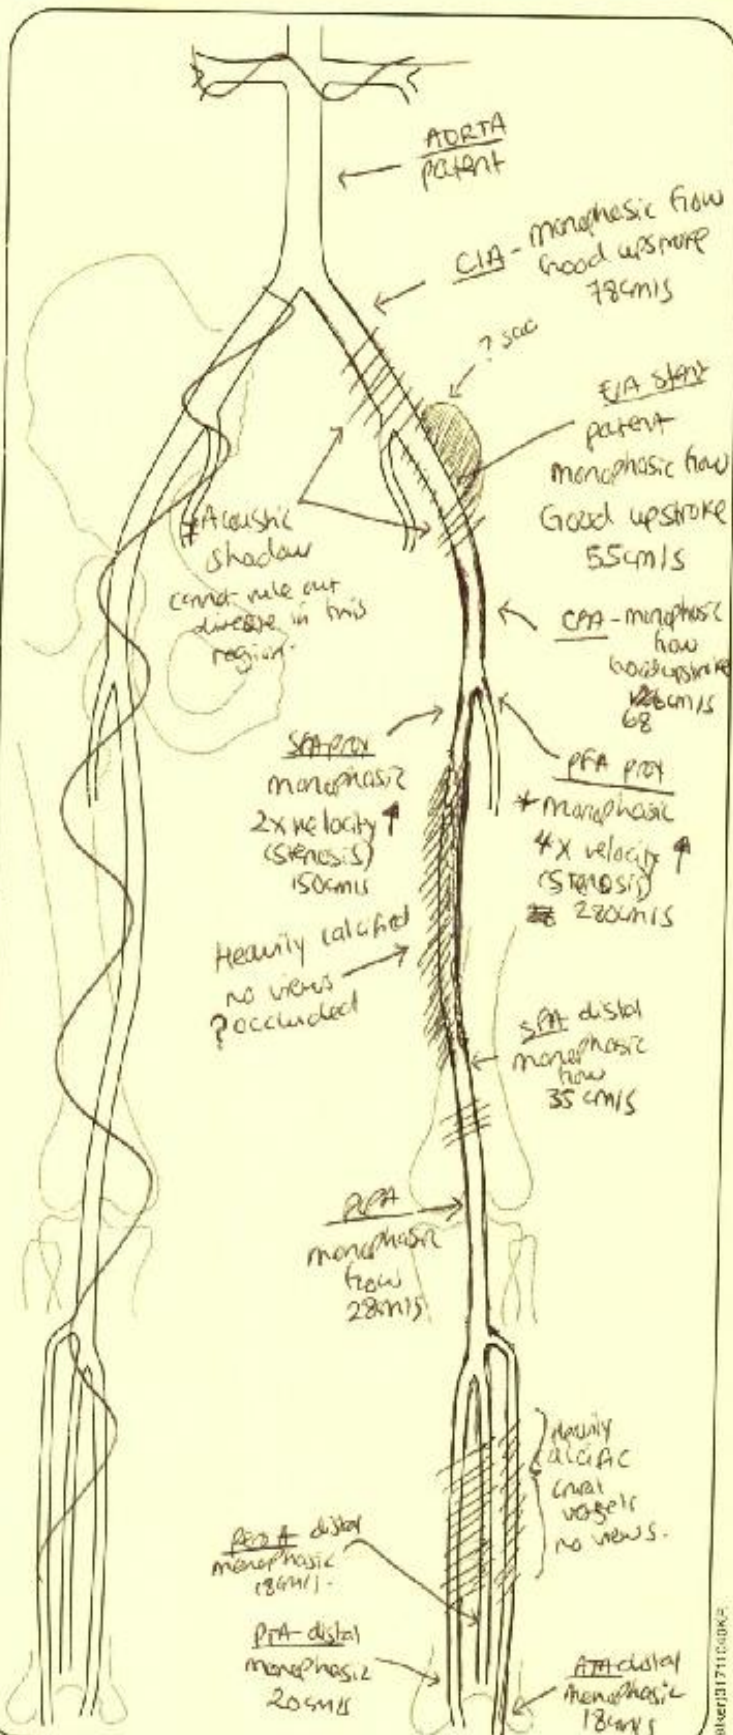 AORTA
patent
CIA - monophasic flow
Good upstroke
78cm/s
? sac
EIA stent
patent
monophasic flow
Good upstroke
55cm/s
Acoustic
shadow
cannot rule out
disease in this
region.
CFA - monophasic
flow
Good upstroke
cm/s
68
SFA prox
monophasic
2x velocity ↑
(stenosis)
150cm/s
PFA prox
* monophasic
4x velocity ↑
(stenosis)
280cm/s
Heavily calcified
no views
? occluded
SFA distal
monophasic
flow
35 cm/s
POPA
monophasic
flow
28cm/s
Heavily
calcific
crural
vessels
no views.
PeroA distal
monophasic
18cm/s.
PTA distal
monophasic
20cm/s
ATA distal
monophasic
18cm/s